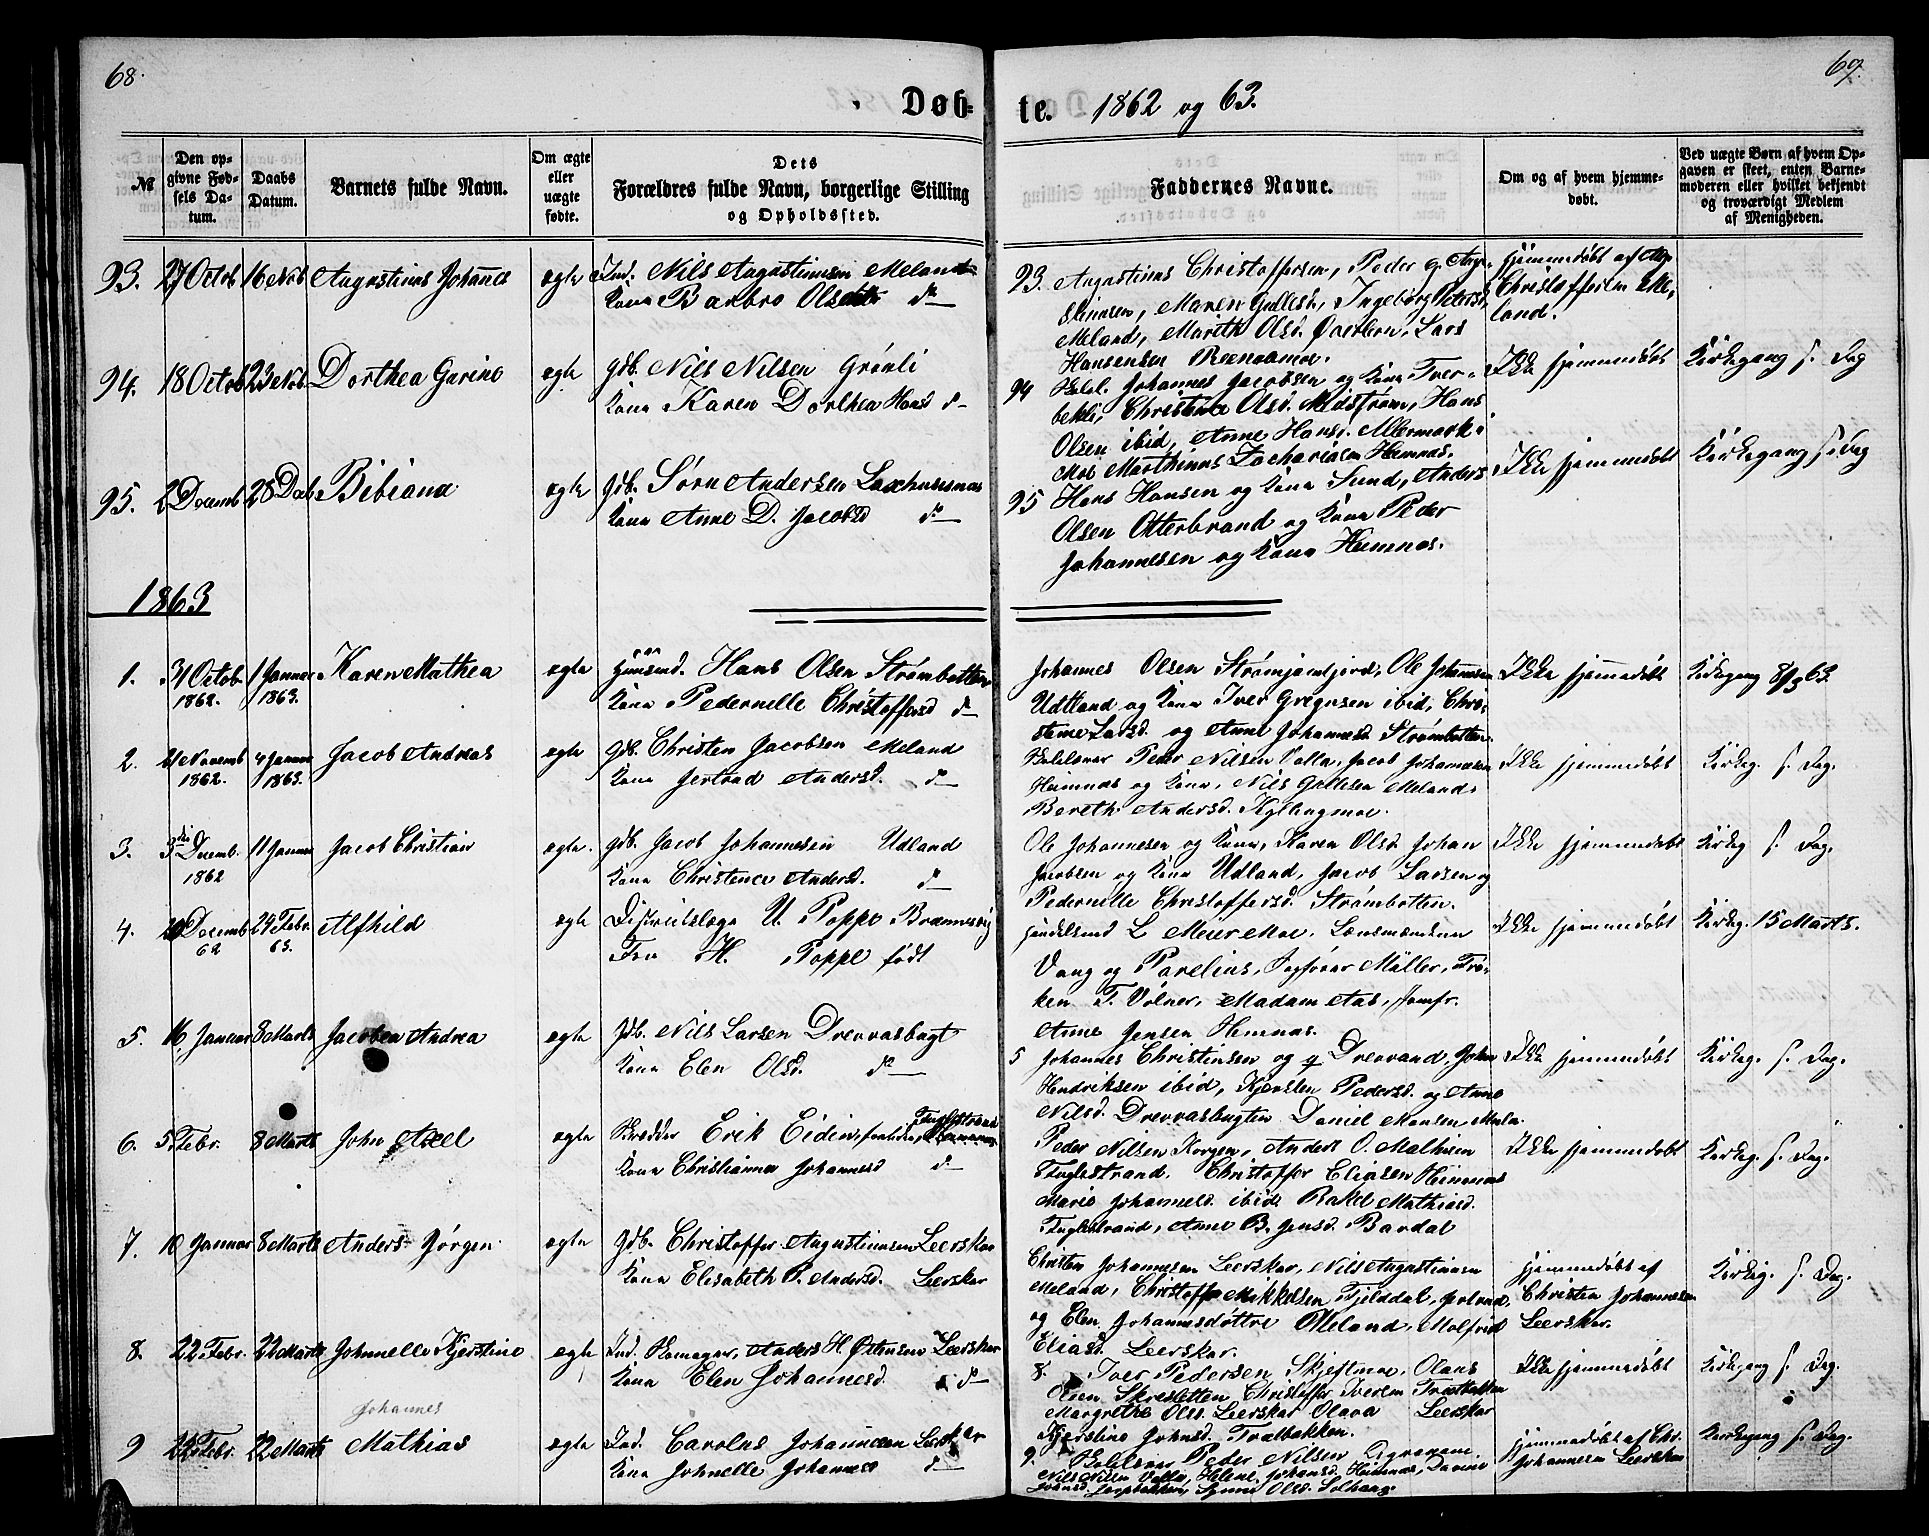 68.
69.
Døb-
te. 1862 og 63.
№
Den op-
givne Fød-
sels Da-
tum.
Daabs
Datum.
Barnets fulde Navn.
Om ægte
eller
uægte
fødte.
Dets
Forældres fulde Navn, borgerlige Stilling
og Opholdssted.
Faddernes Navne.
Om og af hvem hjemme-
døbt.
Ved uægte Børn af hvem Op-
gaven er skeet, enten Barne-
moderen eller hvilket bekjendt
og troværdigt Medlem
af Menigheden.
93. 27 Octob 16 Nov Augustinus Johannes ægte Ind. Nils Augustinusen Meland
Kone Barbro Olsdatter do
93. Augustinus Christoffersen, Peder
Maren Gullesd, Ingeborg Pedersd,
Meland, Marith Olsd. Lars
Hansen
hjemmedøbt af
Christoffersen Me-
land.
94. 18 Octob 23 Nov Dorthea Gurine ægte Gdb. Nils Nilsen Grønli
Kone Karen Dorthea Hansd do
94 Johannes Jacobsen og Kone Tver-
bekli, Christine Olsd. Midstrøm, Hans
Olsen ibid, Anne Hansd.
Moe Marthinus Zachariasen Hemnes.
Ikke hjemmedøbt
Kirkegang s. Dag
95. 2 Decemb 28 Decb Bibiana ægte Gdb. Sørn Andersen
Kone Anne D. Jacobsd do
95 Hans Hansen og Kone Sund, Anders
Olsen Otterbrand og Kone Peder
Johannesen og Kone Hemnes.
Ikke hjemmedøbt
Kirkegang s. Dag
1863
1. 31 Octob 1862. 1 Januar 1863. Karen Mathea ægte Huusmd. Hans Olsen Strømbotten
Kone Pedernelle Christoffersd do
Johannes Olsen Ole Johannesen
Udtland og Kone Iver Gregusen ibid, Chri-
stine Larsd. og Anne Johannesd Strømbotten.
Ikke hjemmedøbt
Kirkegang 8/3 63.
2. 21 Novemb 1862. 4 Januar 1863. Jacob Andreas ægte Gdb. Christen Jacobsen Meland
Kone Gertrud Andersd. do
Peder Nilsen Valla, Jacob Johannesen
Hemnes og Kone, Nils Gullesen Meland,
Bereth Andersd. Kyllingmoe.
Ikke hjemmedøbt
Kirkeg. s. Dag.
3. 3die Decemb. 1862 11 Januar Jacob Christian ægte. Gdb. Jacob Johannesen Udland
Kone Christence Andersd. do
Ole Johannesen og Kone, Karen Olsd Johan
Jacobsen og Kone Udland, Jacob Larsen og
Pedernille Christoffersd. Strømbotten.
Ikke hjemmedøbt
Kirkeg s. Dag.
4. 20 Decemb 62 24 Febr. 63. Alfhild ægte Districtslæge U. Poppe
Fru H. Poppe født
Handelsmd L Meier Moe. Lænsmændene
Vang og Parelius, Jomfruer Müller, Frø-
ken T. Volner, Madam Aas, Jomfr.
Anne Jensen Hemnes.
Ikke hjemmedøbt
Kirkeg. 15 Marts.
5. 16 Januar 8 Marts Jacobea Andrea ægte Gdb. Nils Larsen Drevvasbugt
Kone Elen Olsd. do
5 Johannes Christinsen og q Drevvand, John
Hendriksen ibid, Kjersten Pedersd. og Anne
Nilsd. Drevvasbugten Daniel Monsen Mula
Ikke hjemmedøbt
Kirkeg. s. Dag.
6. 5 Febr. 8 Marts John Axel ægte Skrædder Erik Eidin, Fuglestrand
Kone Christianna Johannesd do
Peder Nilsen Korgen, Anders O. Mathisen
Fuglestrand. Christoffer Eliasen Hemnes
Marie Johannesd. ibid. Rakel Mathiasd.
Fuglestrand, Anne B. Jensd. Bardal
Ikke hjemmedøbt
Kirkeg. s. Dag.
7. 10 Januar 8 Marts Anders Jørgen ægte Gdb. Christoffer Augustinusen Leerskar
Kone Elisabeth P. Andersd. Leerskar
Christen Johannesen Leerskar, Nils Augustinusen
Meland, Christoffer Mikkelsen Fjelddal,
og Elen Johannesdøttre Meland, Molfrid
Eliasd. Leerskar.
hjemmedøbt af
Christen Johannesen
Leerskar.
Kirkeg. s. Dag.
8. 22 Febr. 22 Marts Johnelle Kjerstine ægte Ind. Anders H Østensen Leerskar
Kone Elen Johannesd. do
8. Iver Pedersen Skjeftmoe, Olaus
Olsen Skresletten, Christoffer Iversen Trætbakken
Margrethe Olsd. Leerskar Olava Leerskar
Kjerstine Johnsd. Trætbakken.
Ikke hjemmedøbt
Kirkegang s. Dag.
9 22 Febr. 22 Marts Johannes
Mathias ægte Ind. Carolus Johannesen Leerskar
Kone Johnelle Johannesd do
9. Peder Nilsen
Nils Nilsen Valla, Helene Johansd. Hemnes,
Olsd. Solhaug.
hjemmedøbt af Chr.
Johannesen Leerskar
Kirkegang s. Dag.